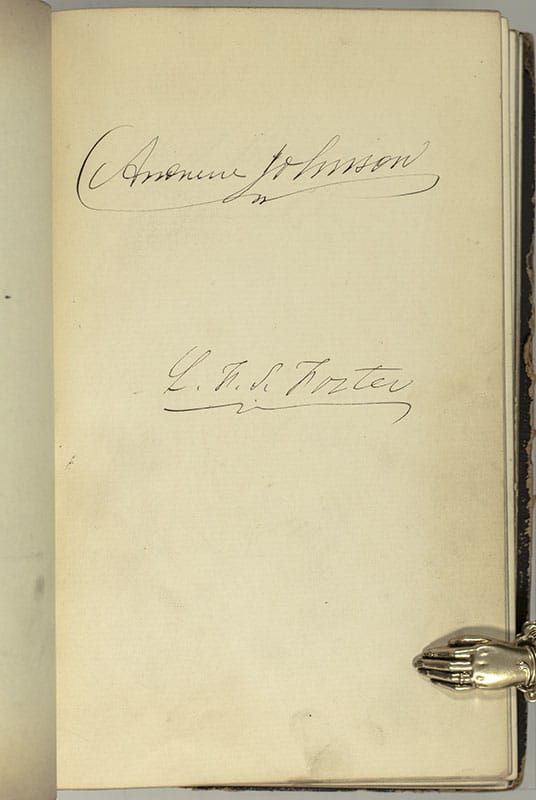 Andrew Johnson
L. F. S. Foster